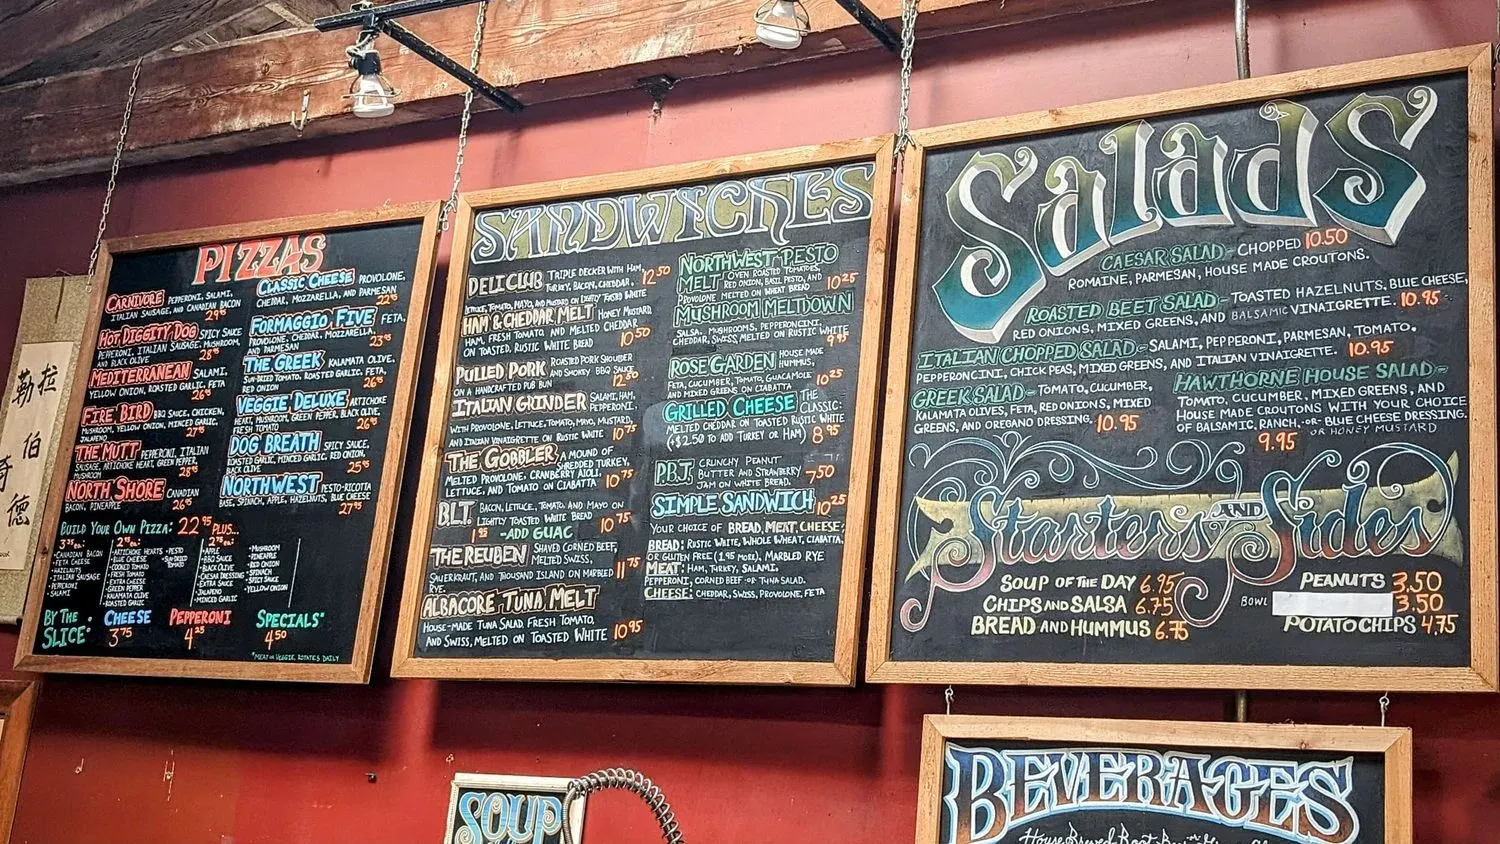 PIZZAS
CARNIVORE PEPPERONI, SALAMI,
ITALIAN SAUSAGE, AND CANADIAN BACON
29⁹⁵
HOT DIGGITY DOG SPICY SAUCE
PEPPERONI, ITALIAN SAUSAGE, MUSHROOM,
AND BLACK OLIVE 28⁹⁵
MEDITERRANEAN SALAMI,
YELLOW ONION, ROASTED GARLIC, FETA
26⁹⁵
FIRE BIRD BBQ SAUCE, CHICKEN,
MUSHROOM, YELLOW ONION, MINCED GARLIC,
JALAPENO 27⁹⁵
THE MUTT PEPPERONI, ITALIAN
SAUSAGE, ARTICHOKE HEART, GREEN PEPPER,
MUSHROOM 28⁹⁵
NORTH SHORE CANADIAN
BACON, PINEAPPLE 26⁹⁵
CLASSIC CHEESE PROVOLONE,
CHEDDAR, MOZZARELLA, AND PARMESAN
22⁹⁵
FORMAGGIO FIVE FETA,
PROVOLONE, CHEDDAR, MOZZARELLA,
AND PARMESAN 23⁹⁵
THE GREEK KALAMATA OLIVE,
SUN-DRIED TOMATO, ROASTED GARLIC, FETA,
RED ONION 26⁹⁵
VEGGIE DELUXE ARTICHOKE
HEART, MUSHROOM, GREEN PEPPER, BLACK OLIVE,
FRESH TOMATO 26⁹⁵
DOG BREATH SPICY SAUCE,
ROASTED GARLIC, MINCED GARLIC, RED ONION,
BLACK OLIVE 25⁹⁵
NORTHWEST PESTO-RICOTTA
BASE, SPINACH, APPLE, HAZELNUTS, BLUE CHEESE
27⁹⁵
BUILD YOUR OWN PIZZA: 22⁹⁵ PLUS...
-CANADIAN BACON
-FETA CHEESE
-HAZELNUTS
-ITALIAN SAUSAGE
-PEPPERONI
-SALAMI
-ARTICHOKE HEARTS
-BLUE CHEESE
-COOKED TOMATO
-FRESH TOMATO
-EXTRA CHEESE
-GREEN PEPPER
-KALAMATA OLIVE
-ROASTED GARLIC
-PESTO
-SUN-DRIED
TOMATO
-APPLE
-BBQ SAUCE
-BLACK OLIVE
-CAESAR DRESSING
-EXTRA SAUCE
-JALAPENO
-MINCED GARLIC
-MUSHROOM
-PINEAPPLE
-RED ONION
-SPINACH
-SPICY SAUCE
-YELLOW ONION
BY THE SLICE: CHEESE PEPPERONI SPECIALS*
3⁷⁵ 4²⁵ 4⁵⁰
*MEAT OR VEGGIE, ROTATES DAILY
SANDWICHES
DELI CLUB TRIPLE DECKER WITH HAM,
TURKEY, BACON, CHEDDAR, 12⁵⁰
LETTUCE, TOMATO, MAYO, AND MUSTARD ON LIGHTLY TOASTED WHITE
HAM & CHEDDAR MELT HONEY MUSTARD
HAM, FRESH TOMATO AND MELTED CHEDDAR
ON TOASTED, RUSTIC WHITE BREAD 10⁵⁰
PULLED PORK ROASTED PORK SHOULDER
AND SMOKEY BBQ SAUCE
ON A HANDCRAFTED PUB BUN 12⁵⁰
ITALIAN GRINDER SALAMI, HAM,
PEPPERONI,
WITH PROVOLONE, LETTUCE, TOMATO, MAYO, MUSTARD,
AND ITALIAN VINAIGRETTE ON RUSTIC WHITE 10⁷⁵
THE GOBBLER A MOUND OF
SHREDDED TURKEY,
MELTED PROVOLONE, CRANBERRY AIOLI,
LETTUCE, AND TOMATO ON CIABATTA 10⁷⁵
B.L.T. BACON, LETTUCE, TOMATO, AND MAYO ON
LIGHTLY TOASTED WHITE BREAD 10⁷⁵
-ADD GUAC
THE REUBEN SHAVED CORNED BEEF,
MELTED SWISS,
SAUERKRAUT, AND THOUSAND ISLAND ON MARBLED
RYE. 11⁷⁵
ALBACORE TUNA MELT
HOUSE-MADE TUNA SALAD FRESH TOMATO,
AND SWISS, MELTED ON TOASTED WHITE 10⁹⁵
NORTHWEST PESTO
MELT OVEN ROASTED TOMATOES,
RED ONION, BASIL PESTO, AND
PROVOLONE MELTED ON WHEAT BREAD 10²⁵
MUSHROOM MELTDOWN
SALSA, MUSHROOMS, PEPPERONCINI,
CHEDDAR, SWISS, MELTED ON RUSTIC WHITE
9⁹⁵
ROSE GARDEN HOUSE MADE
HUMMUS,
FETA, CUCUMBER, TOMATO, GUACAMOLE
AND MIXED GREENS ON CIABATTA 10²⁵
GRILLED CHEESE THE
CLASSIC-
MELTED CHEDDAR ON TOASTED RUSTIC WHITE
(+$2.50 TO ADD TURKEY OR HAM) 8⁹⁵
P.B.J. CRUNCHY PEANUT
BUTTER AND STRAWBERRY
JAM ON WHITE BREAD. 7⁵⁰
SIMPLE SANDWICH 10²⁵
YOUR CHOICE OF BREAD, MEAT, CHEESE:
BREAD: RUSTIC WHITE, WHOLE WHEAT, CIABATTA,
OR GLUTEN FREE (1.95 MORE), MARBLED RYE
MEAT: HAM, TURKEY, SALAMI,
PEPPERONI, CORNED BEEF OR TUNA SALAD.
CHEESE: CHEDDAR, SWISS, PROVOLONE, FETA
SALADS
CAESAR SALAD- CHOPPED 10.50
ROMAINE, PARMESAN, HOUSE MADE CROUTONS.
ROASTED BEET SALAD- TOASTED HAZELNUTS, BLUE CHEESE,
RED ONIONS, MIXED GREENS, AND BALSAMIC VINAIGRETTE. 10.95
ITALIAN CHOPPED SALAD- SALAMI, PEPPERONI, PARMESAN, TOMATO.
PEPPERONCINI, CHICK PEAS, MIXED GREENS, AND ITALIAN VINAIGRETTE. 10.95
GREEK SALAD- TOMATO, CUCUMBER,
KALAMATA OLIVES, FETA, RED ONIONS, MIXED
GREENS, AND OREGANO DRESSING. 10.95
HAWTHORNE HOUSE SALAD-
TOMATO, CUCUMBER, MIXED GREENS, AND
HOUSE MADE CROUTONS WITH YOUR CHOICE
OF BALSAMIC, RANCH, -OR- BLUE CHEESE DRESSING.
9.95 OR HONEY MUSTARD
Starters AND Sides
SOUP OF THE DAY 6.95
CHIPS AND SALSA 6.75
BREAD AND HUMMUS 6.75
PEANUTS 3.50
BOWL 3.50
POTATO CHIPS 4.75
SOUP
BEVERAGES